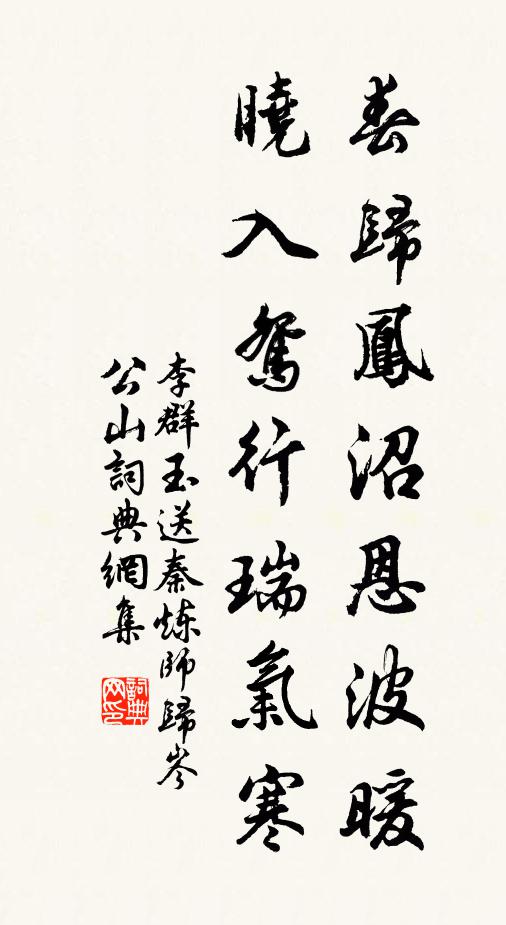 春歸鳳沼恩波暖
曉入鴛行瑞氣寒
李群玉送秦煉師歸岑
公山詞典網集
詞典
网印